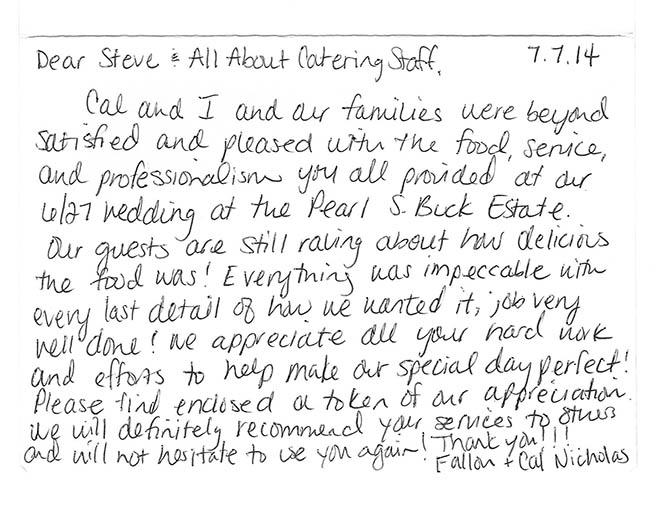 Dear Steve & All About Catering Staff, 7.7.14
Cal and I and our families were beyond
satisfied and pleased with the food, service,
and professionalism you all provided at our
6/27 wedding at the Pearl S. Buck Estate.
Our guests are still raving about how delicious
the food was! Everything was impeccable with
every last detail of how we wanted it, job very
well done! We appreciate all your hard work
and efforts to help make our special day perfect!
Please find enclosed a token of our appreciation.
We will definitely recommend your services to others
and will not hesitate to use you again! Thank you!!!
Fallon + Cal Nicholas